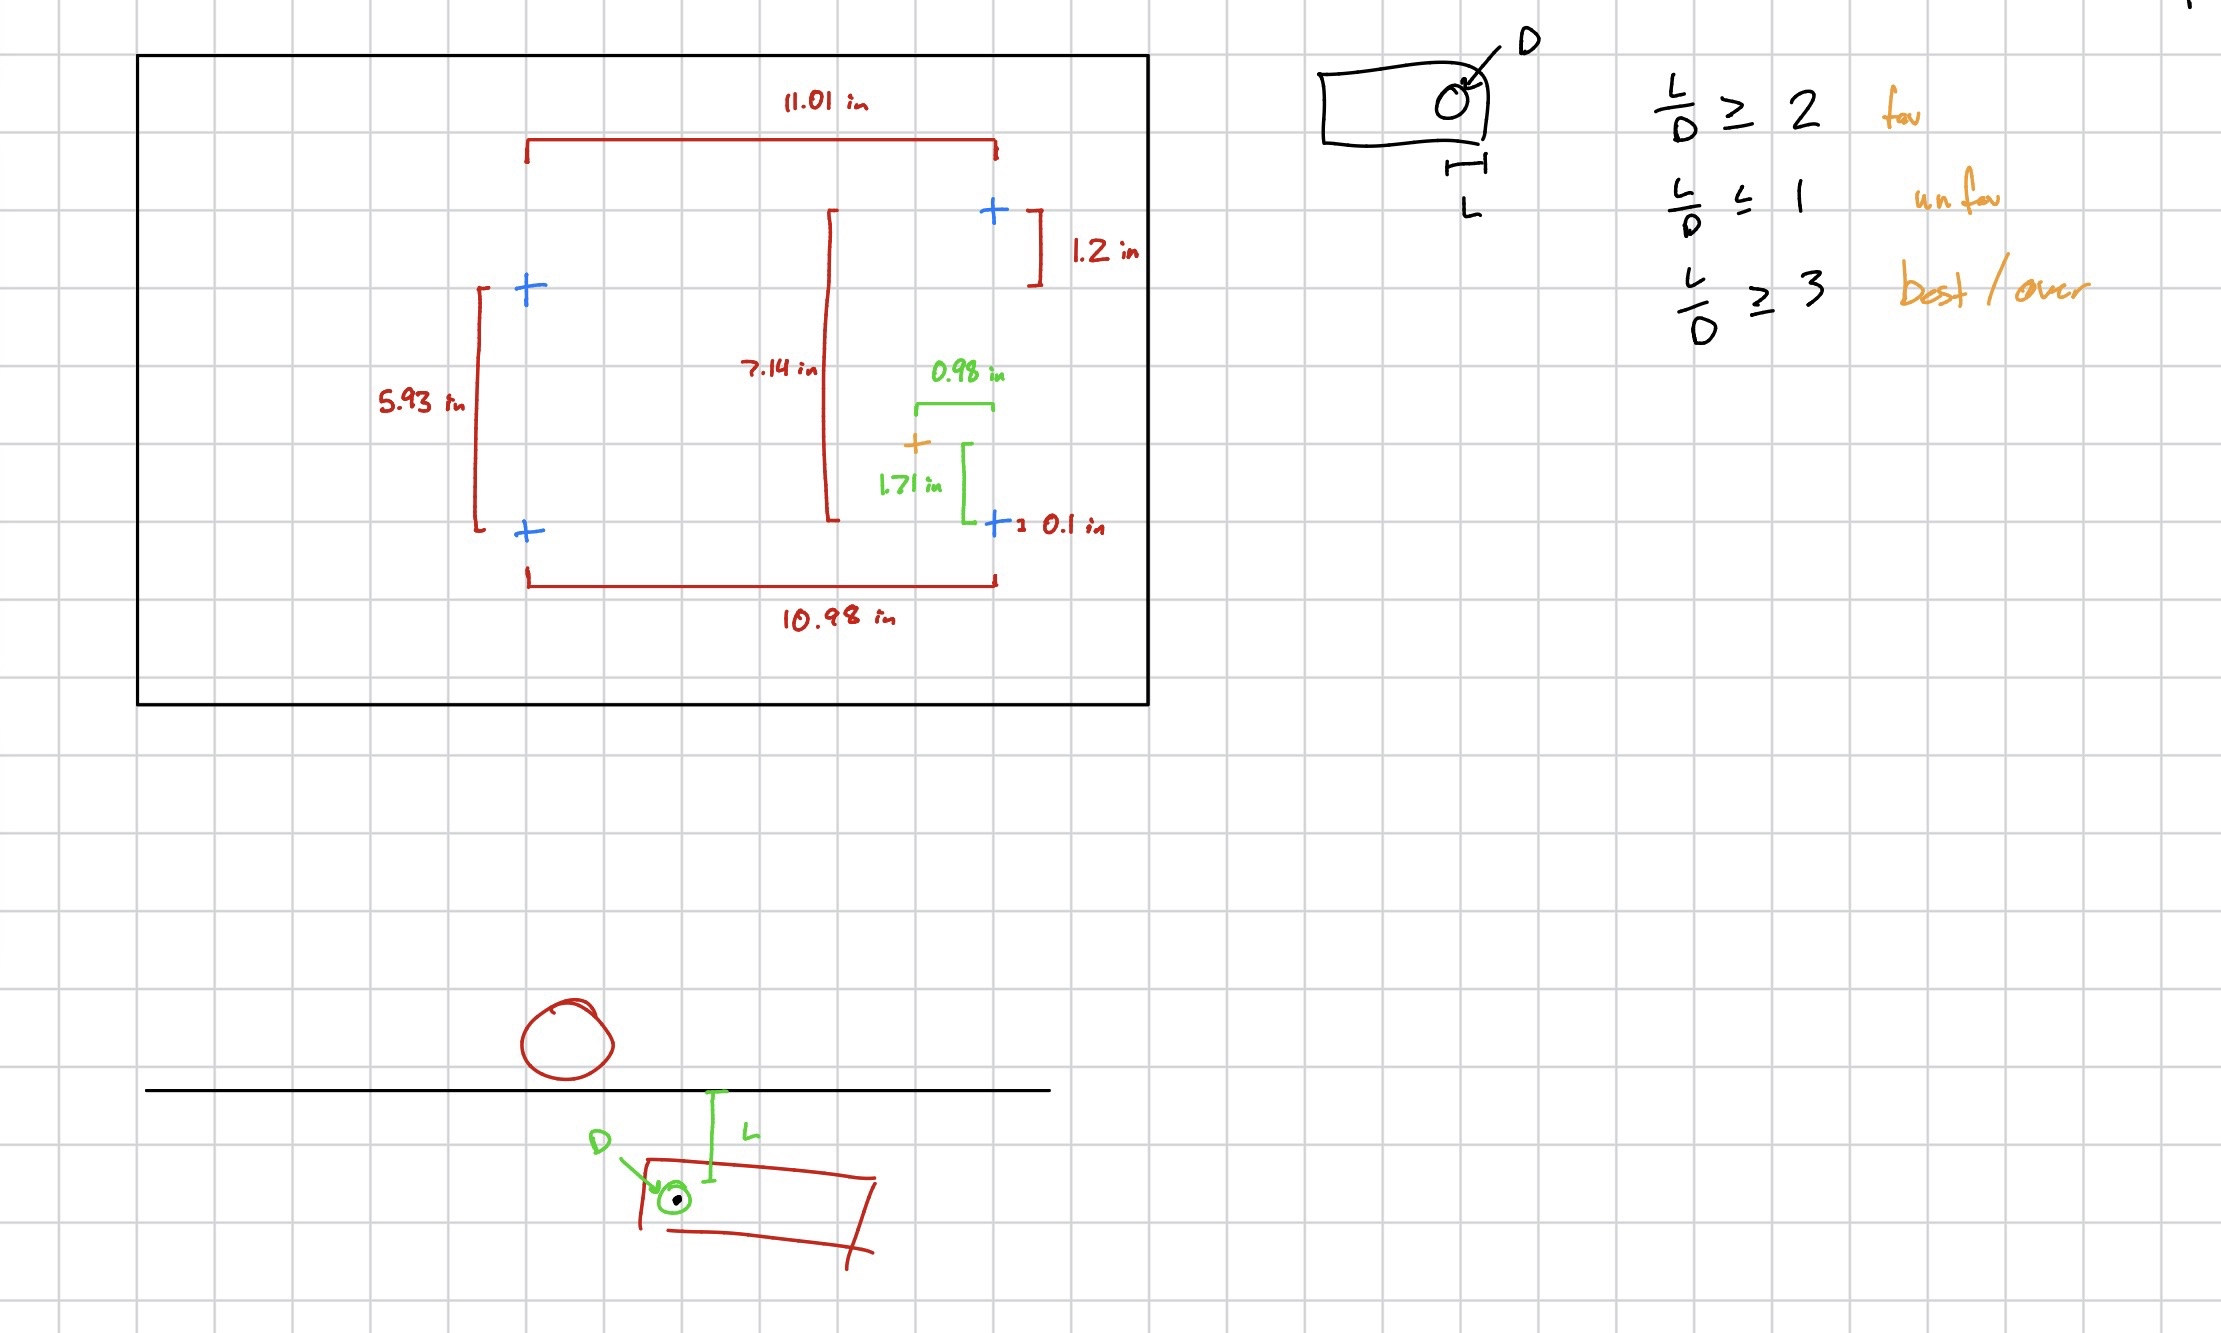 11.01 in
1.2 in
7.14 in
0.98 in
5.93 in
1.71 in
0.1 in
10.98 in
D
L
L/D ≥ 2 fav
L/D ≤ 1 unfav
L/D ≥ 3 best/over
D
L